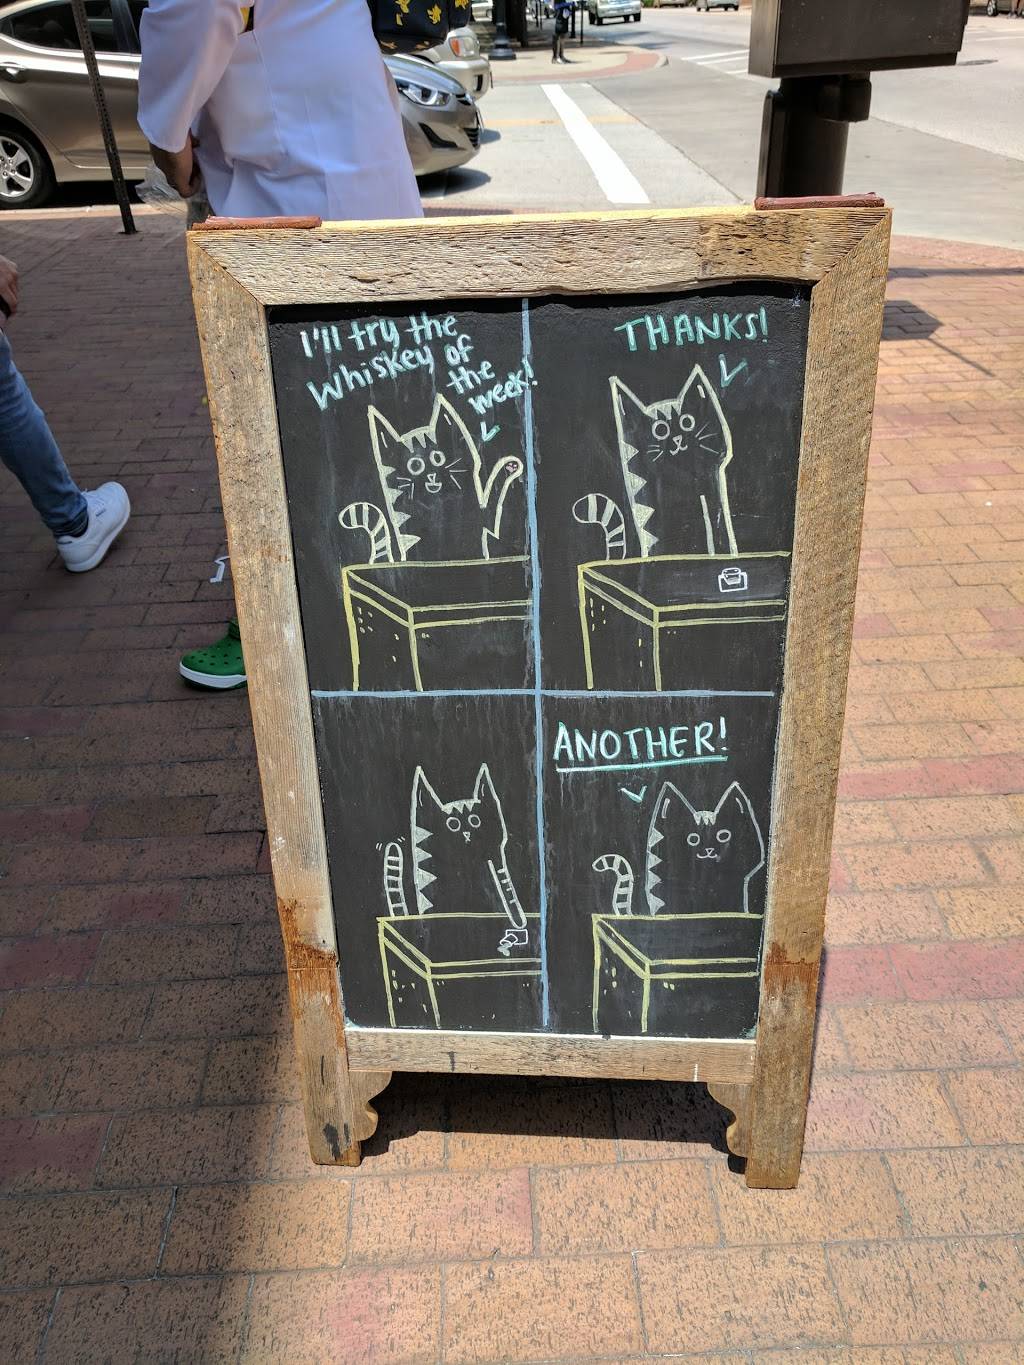 I'll try the
Whiskey of
the
week!
THANKS!
ANOTHER!